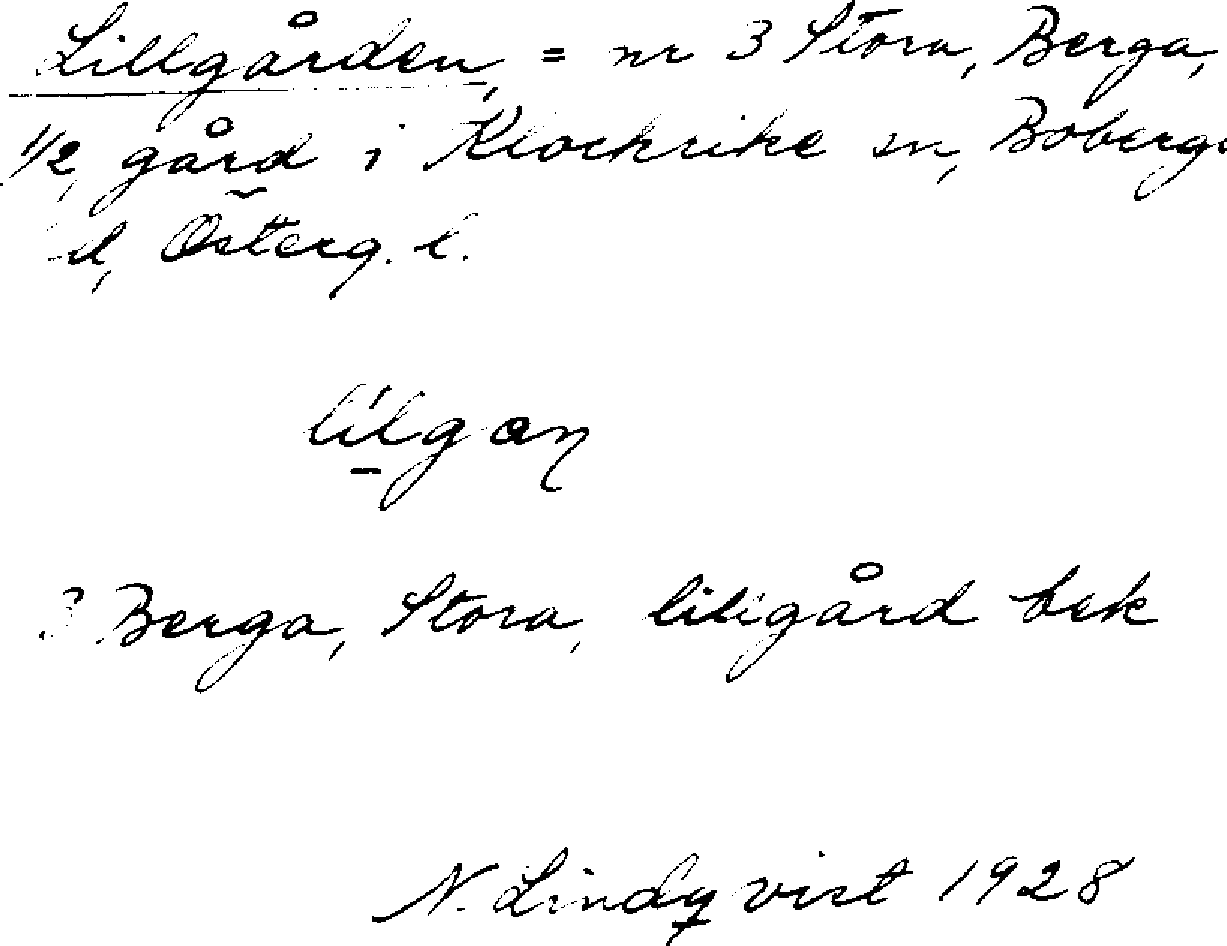 Lillgården, = nr 3 Stora, Berga,
1/2, gård i Klockrike sn, Bobergs
d, Österg. l.
lilgan
3 Berga, Stora, lillgård bek
N. Lindqvist 1928